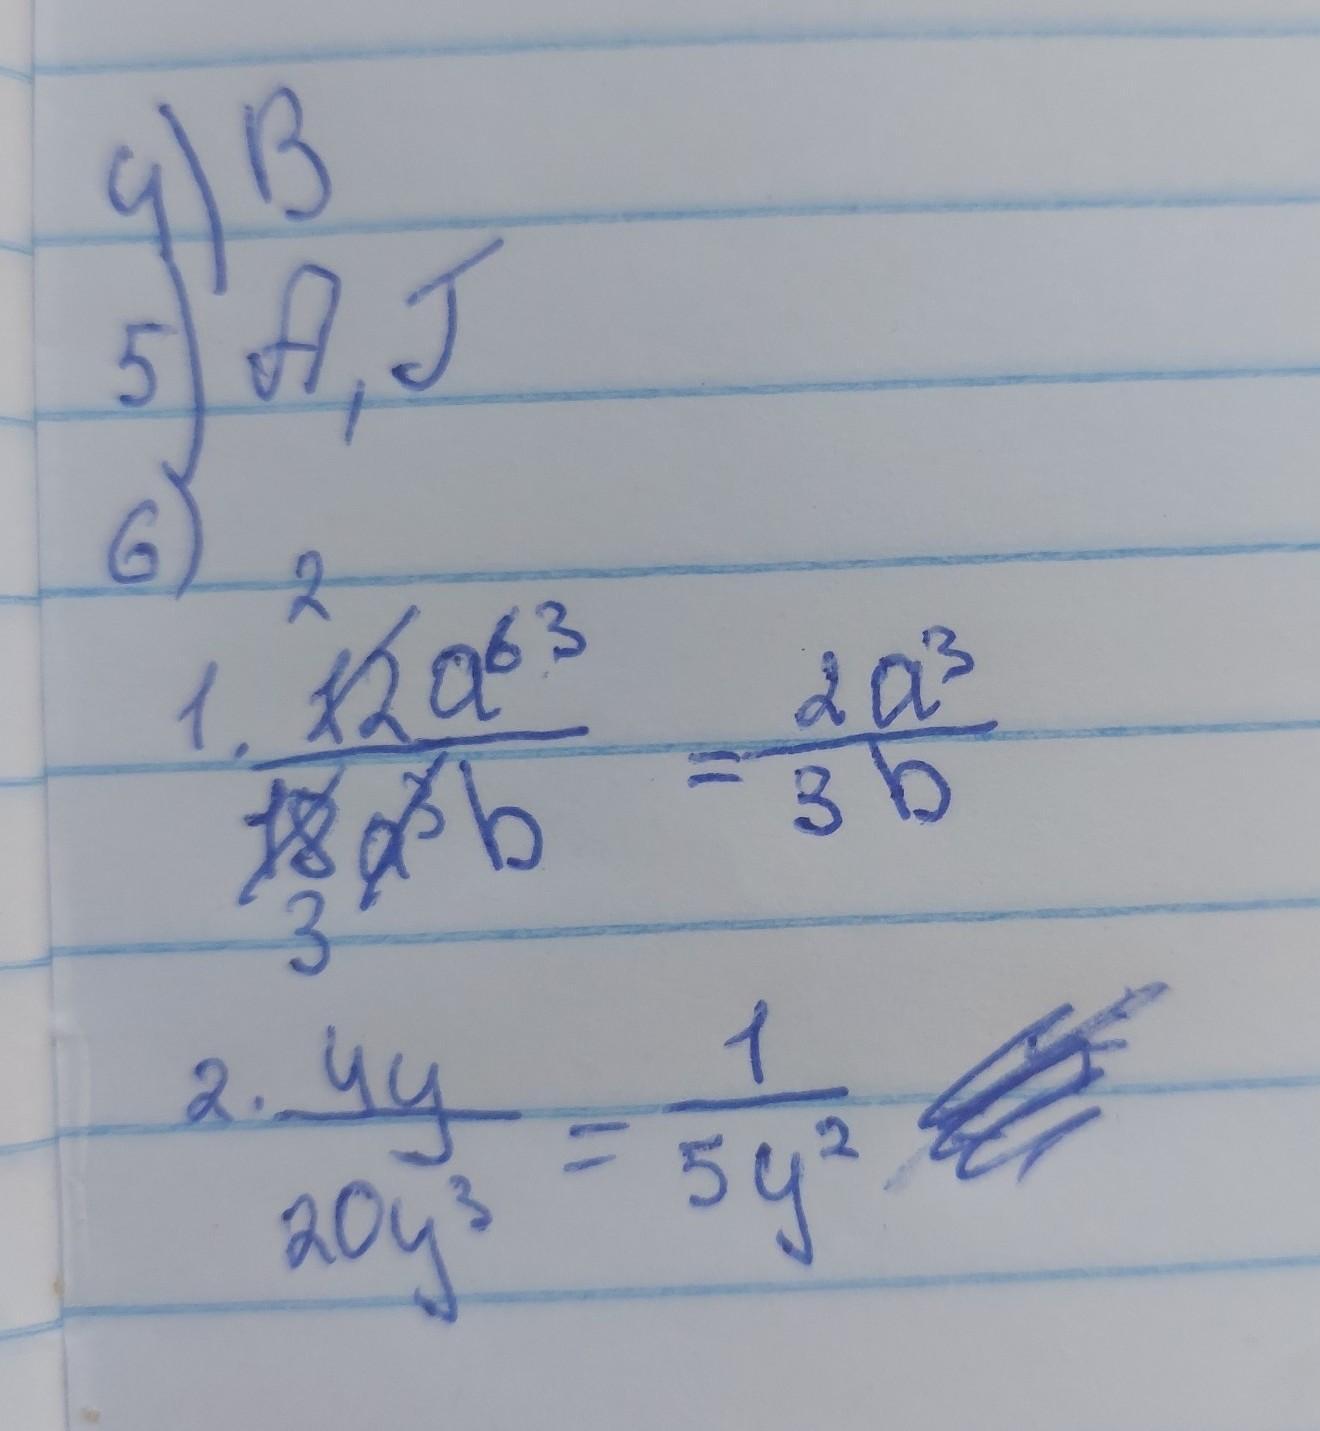 4) B
5) A, J
6)
1. 12a⁶ ³ / 18a³b = 2a³ / 3b
2
3
2. 4y / 20y³ = 1 / 5y²